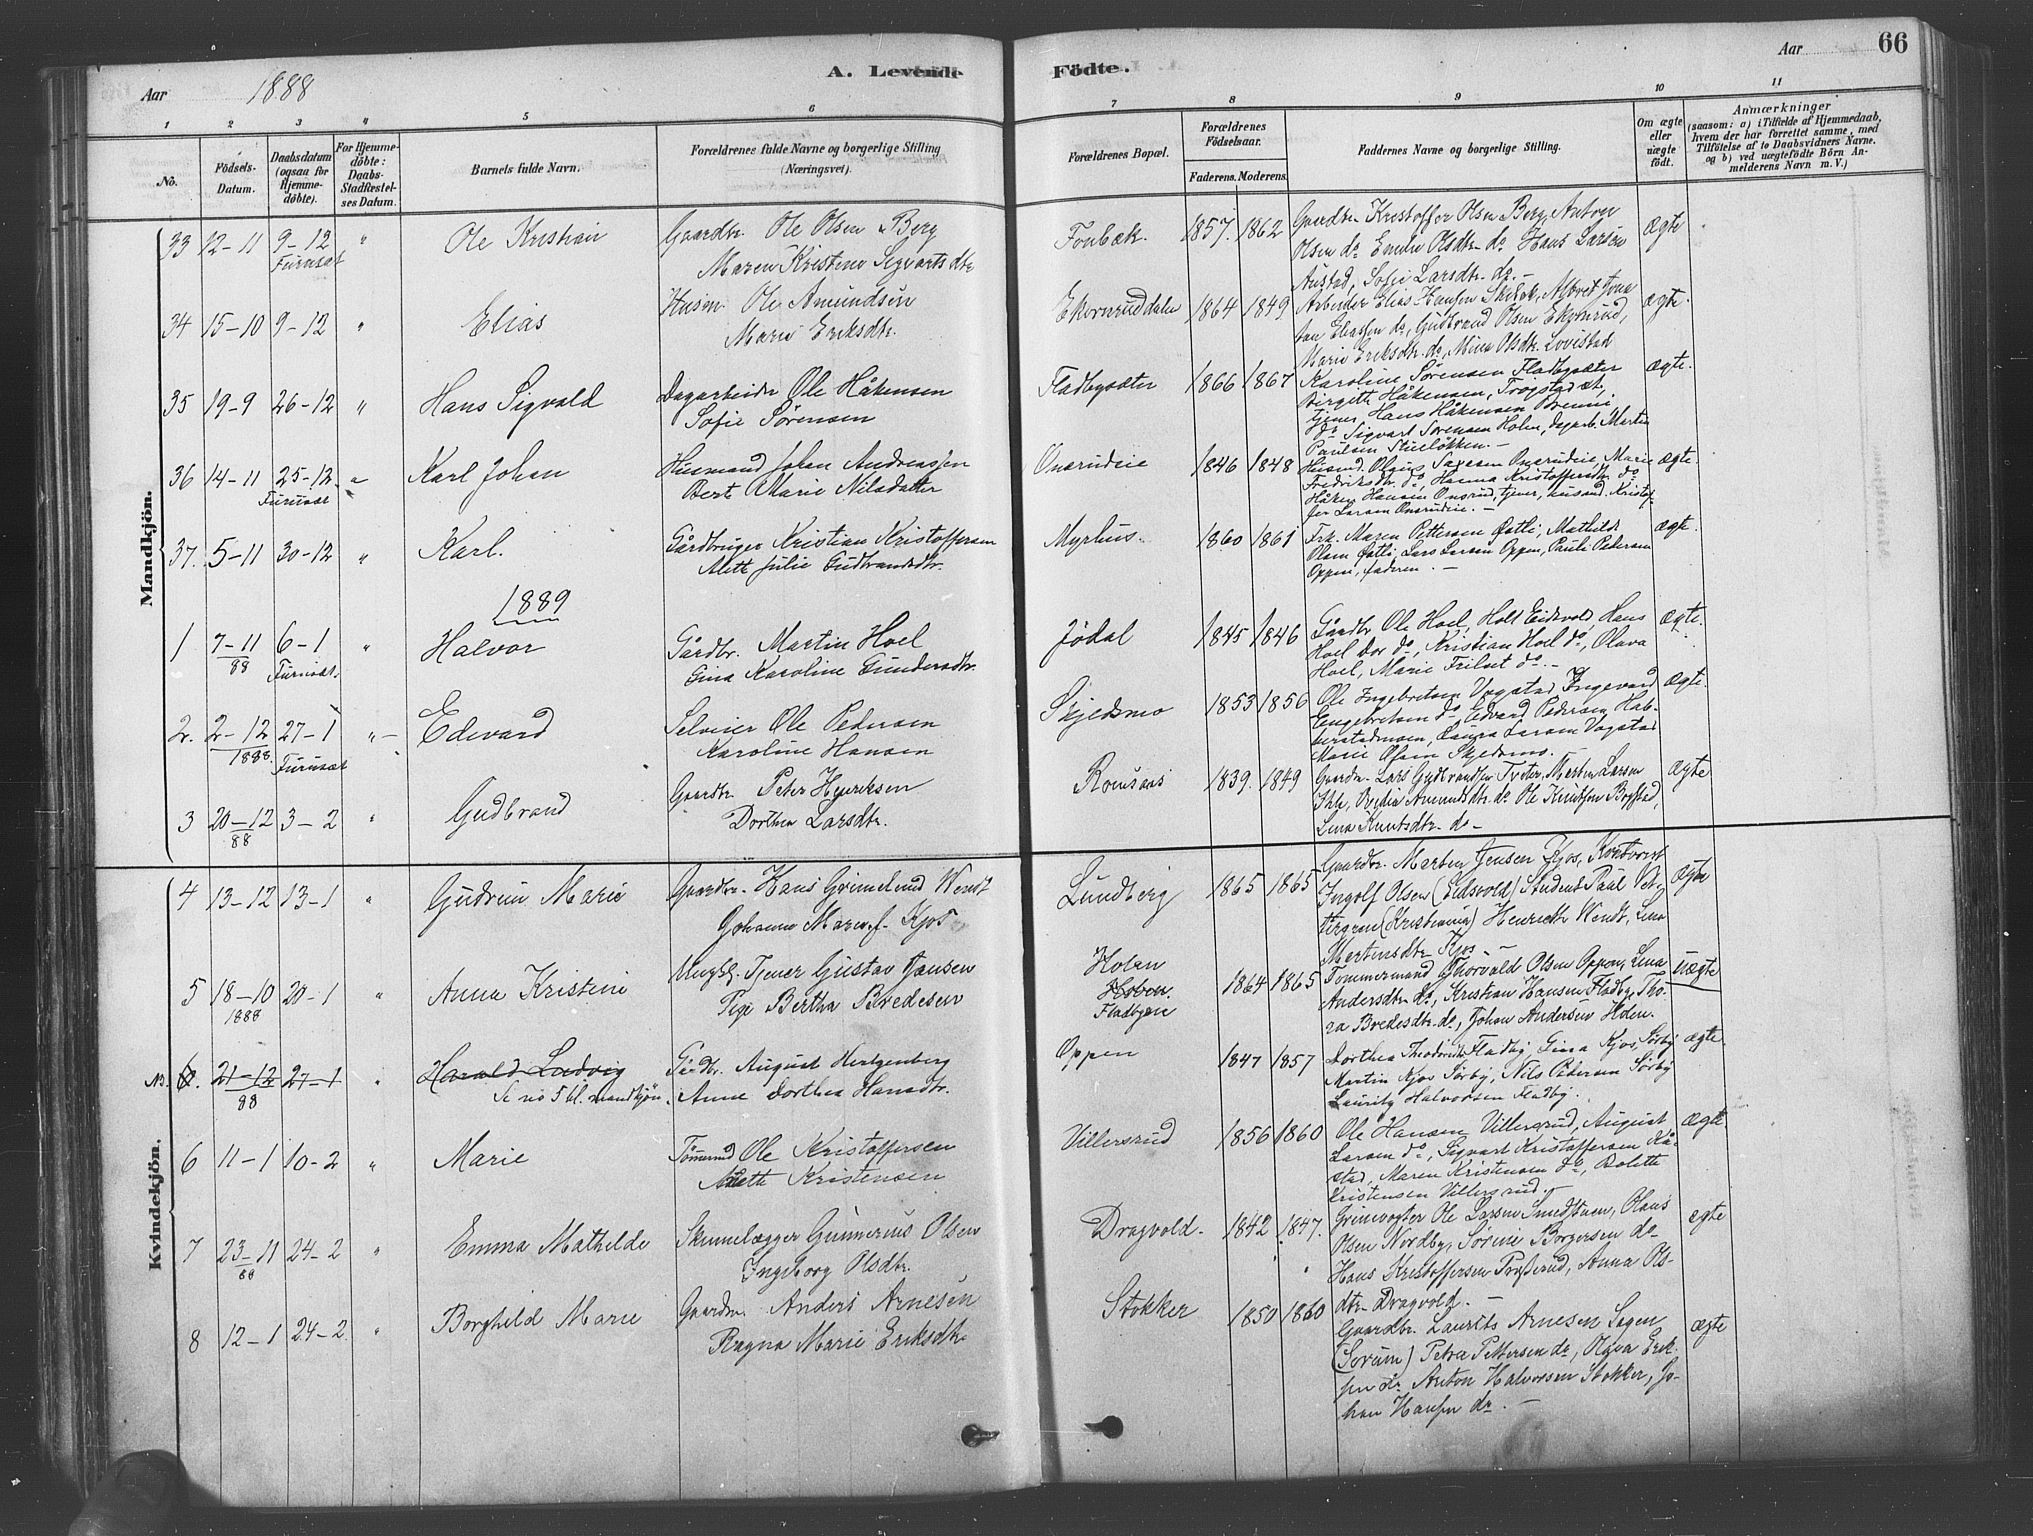 Aar 1888
A. Levende Födte.
Aar 66
1 2 3 " 5 6 7 8 9 10 11
No.
Födsels-Datum.
Daabsdatum (ogsaa for Hjemmedöbte).
For Hjemmedöbte: Daabs-Stadfæstelses Datum.
Barnets fulde Navn.
Forældrenes fulde Navne og borgerlige Stilling (Næringsvei).
Forældrenes Bopæl.
Forældrenes Födselsaar.
Faderens. Moderens.
Faddernes Navne og borgerlige Stilling.
Om ægte eller uægte födt.
Anmærkninger (saasom: a) i Tilfælde af Hjemmedaab, hvem der har forrettet samme, med Tilföielse af to Daabsvidners Navne. og b) ved uægtefödte Börn Anmelderens Navn m. V.)
Mandkjön.
33 12-11 9-12 Furuset " Ole Kristian
Gaardbr. Ole Olsen Berg
Maren Kristine Sigvartsdtr
Fonbæk. 1857. 1862
Gaardbr Kristoffer Olsen Berg, Anton
Olsen do Emilie Olsdtr do Hans Larsen
Austad, Sofie Larsdtr. do. -
Ægte
34 15-10 9-12 " Elias
Husm. Ole Amundsen
Marie Eriksdtr.
Ekornruddalen 1864 1849
Arbeider Elias Hansen
Eliassen do, Gudbrand Olsen Ekornrud,
Marie Eriksdtr. do, Mina Olsdtr. Lovistad
ægte.
35 19-9 26-12 " Hans Sigvald
Dagarbeider Ole Håkensen
Sofie Sørensen
Fladbysæter 1866 1867
Karoline Sørensen Fladbysæter
Birgitte Håkensen, Trøgstad
tjener, Hans Håkensen
do Sigvart Sørensen Holm, dagarb. Martin
Paulsen Stueløkken. -
ægte.
36 14-11 25-12 Furuset " Karl Johan
Husmand Johan Andreassen
Bert Marie Nilsdatter
Onsrudeie 1846 1848
Husmd. Onsrudeie, Marie
Fredriksdtr. do, Hanna Kristoffersdtr. do
Håken Hansen Onsrud, tjener, husmd. Kristof-
fer Larsen Onsrudeie. -
ægte.
37. 5-11 30-12 " Karl.
Gårdbruger Kristian Kristoffersen
Alette Julie Gudbrandsdtr.
Myrhus. 1860 1861
Frk. Maren Pettersen Østli, Mathilde
Olsen Østli, Lars Larsen Oppen, Pauli Pedersen
Oppen, faderen. -
ægte.
1889
1 7-11 88 6-1 Furuset. " Halvor
Gårdbr. Martin Hoel
Gina Karoline Gundersdtr.
Jødal 1845 1846
Gårdbr Ole Hoel, Holt Eidsvold, Hans
Hoel Dor do, Kristian Hoel do, Olava
Hoel, Marie Frilset do. -
ægte.
2. 2-12 1888. 27-1 Furuset " Edevard
Selveier Ole Pedersen
Karoline Hansen
Skjedsmo 1853 1856
Ole Ingebretsen Vogstad Ingevard
Engebretsen do Edvard Pedersen Hal-
berstadmoen, Laura Larsen Vogstad
Marie Olsen Skjedsmo. -
ægte.
3 20-12 88 3-2 " Gudbrand
Gaardbr Peter Henriksen
Dorthea Larsdtr.
Romsaas 1839. 1849
Gaardbr. Lars Gudbrandsen Tveter, Morten Larsen
Ihle, Amundsdtr. do Ole Knudsen Bogstad,
Lina Knutsdtr. do -
ægte
Kvindekjön.
4 13-12 13-1 " Gudrun Marie
Gaardbr. Hans Grimelund Wendt
Johanne Marie f. Kjos
Lundberg 1865 1865
Gaardbr. Morten Jensen Kjos, Kontorist
Ingolf Olsen (Eidsvold) Student Paul Vet-
tergren (Kristiania) Henriette Wendt, Lina
Mortensdtr Kjos. -
ægte
5 18-10 1888 20-1 " Anna Kristine
Ungk. Tjener Gustav Jansen
Pige Bertha Bredesen
Holen Holen. Fladbyeie 1864 1865
Tømmermand Thorvald Olsen Oppen, Lina
Andersdtr do, Kristian Hansen Fladby, Tho-
ra Bredesdtr. do, Johan Andersen Holen.
uægte
NB. 6. 21-12 88 27-1 " Harald Ludvig
Se no 5 bl. mandkjön.
Gårdbr. August Hertzenberg
Anne Dorthea Hansdtr.
Oppen 1847 1857
Dorthea Theodorsdtr Fladby Gina Kjos, Sörby
Martin Kjos Sörby, Nils Pedersen Sörby
Lauritz Halvorsen Fladby.
ægte
6 11-1 10-2 " Marie
Tömmermd Ole Kristoffersen
Anette Kristensen
Villersrud 1856 1860
Ole Hansen Villersrud, August
Larsen do, Sigvart Kristoffersen Kå-
stad, Maren Kristensen do, Bolette
Kristensen Villersrud. -
ægte
7 23-11 88 24-2 " Emma Mathilde
Skinnelægger Gunnerius Olsen
Ingeborg Olsdtr.
Dragvold. 1842 1847.
Grinvogter Ole Larsen Smedstuen, Olaus
Olsen Nordby, Sørine Borgersen do -
Hans Kristoffersen Presterud, Anna Ols-
dtr. Dragvold. -
ægte
8 12-1 24-2 " Borghild Marie
Gaardbr. Anders Arnesen
Ragna Marie Eriksdtr
Stokker 1850 1860
Gaardbr. Laurits Arnesen Sogen
(Sørum) Petra Pettersen do, Olava Erik-
sen do Anton Halvorsen Stokker, Jo-
han Hansen do. -
ægte